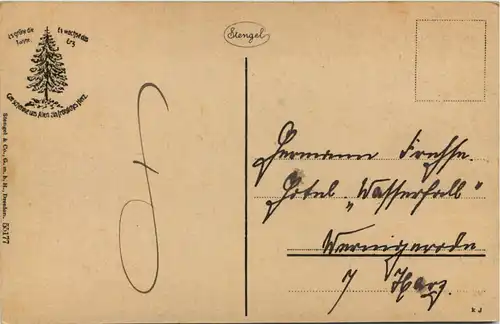 Es grüne die Tanne, Es wachse das Erz
Gott schenke uns Allen ein fröhliches Herz.
Stengel
Stengel & Co., G. m. b. H., Dresden. 55177
Hermann
Hotel „Wasserfall"
Wernigerode
Harz.
k J